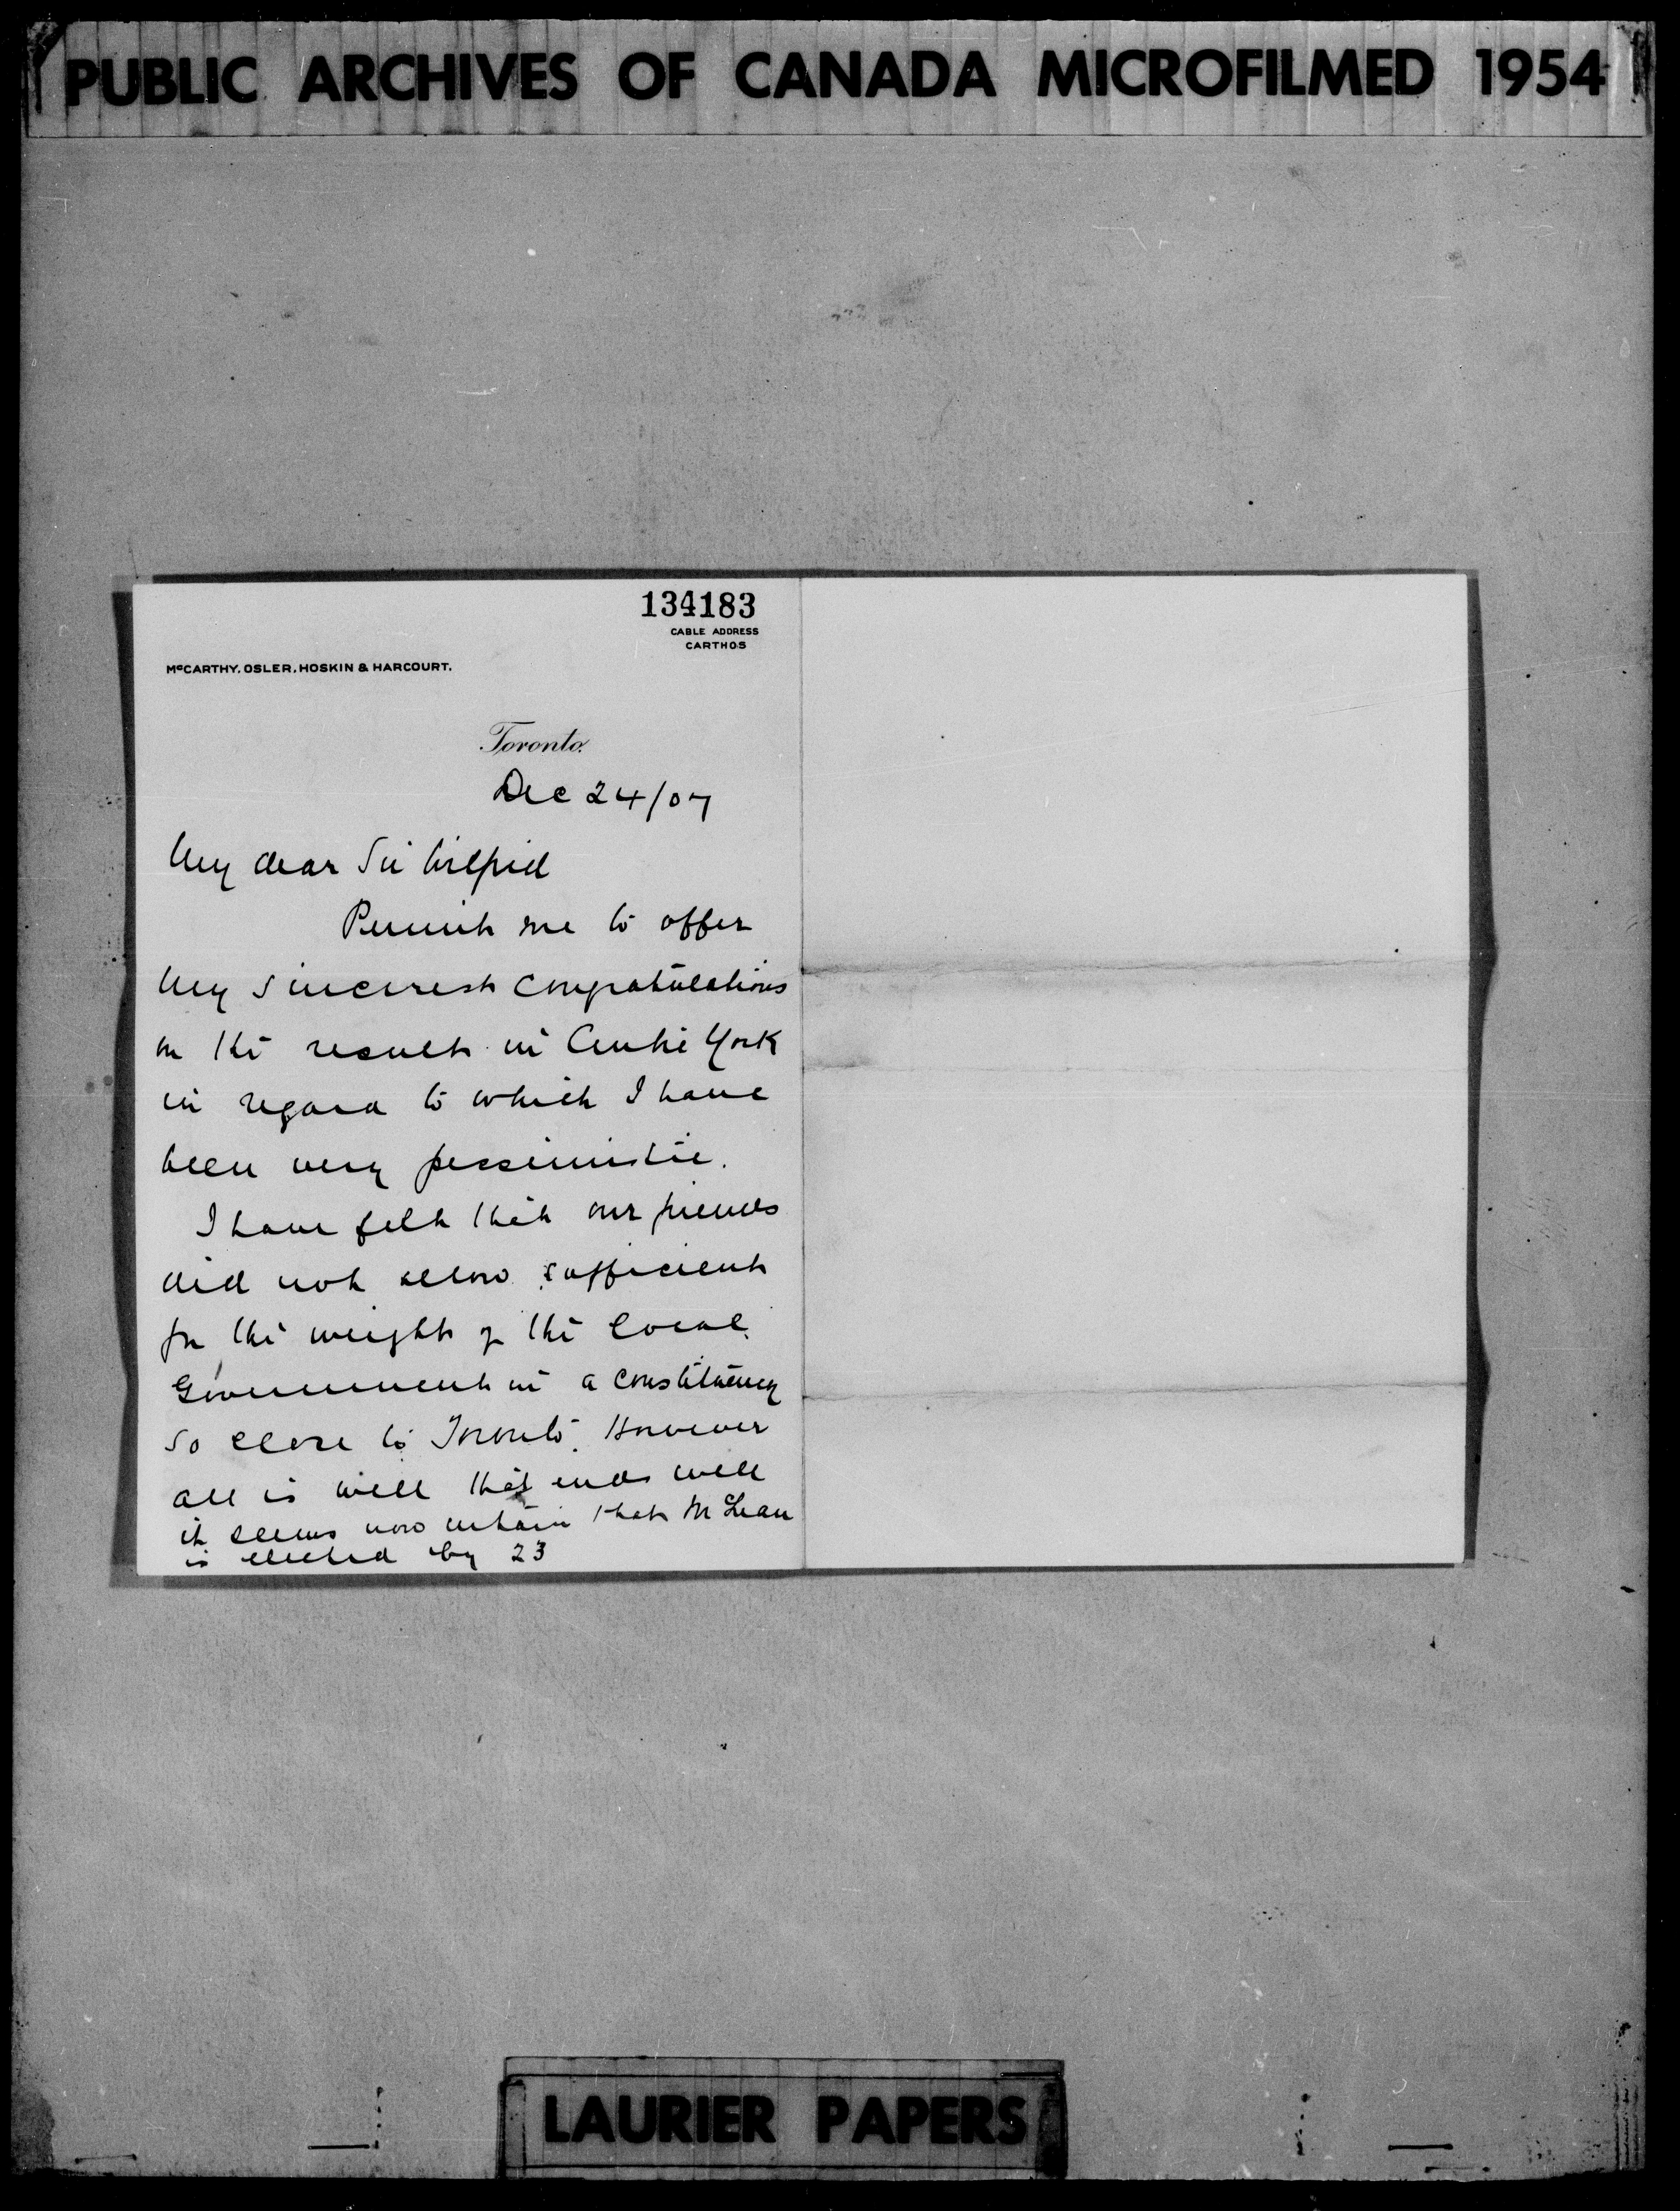 PUBLIC ARCHIVES OF CANADA MICROFILMED 1954
134183
CABLE ADDRESS
CARTHOS
McCARTHY, OSLER, HOSKIN & HARCOURT.
Toronto.
Dec 24/07
My dear Sir Wilfrid
Permit me to offer
my sincerest congratulations
on the result in Centre York
in regard to which I have
been very pessimistic.
I have felt that our friends
did not allow sufficient
for the weight of the local
Government in a constituency
so close to Toronto. However
all is well that ends well
it seems now certain that McLean
is elected by 23
LAURIER PAPERS